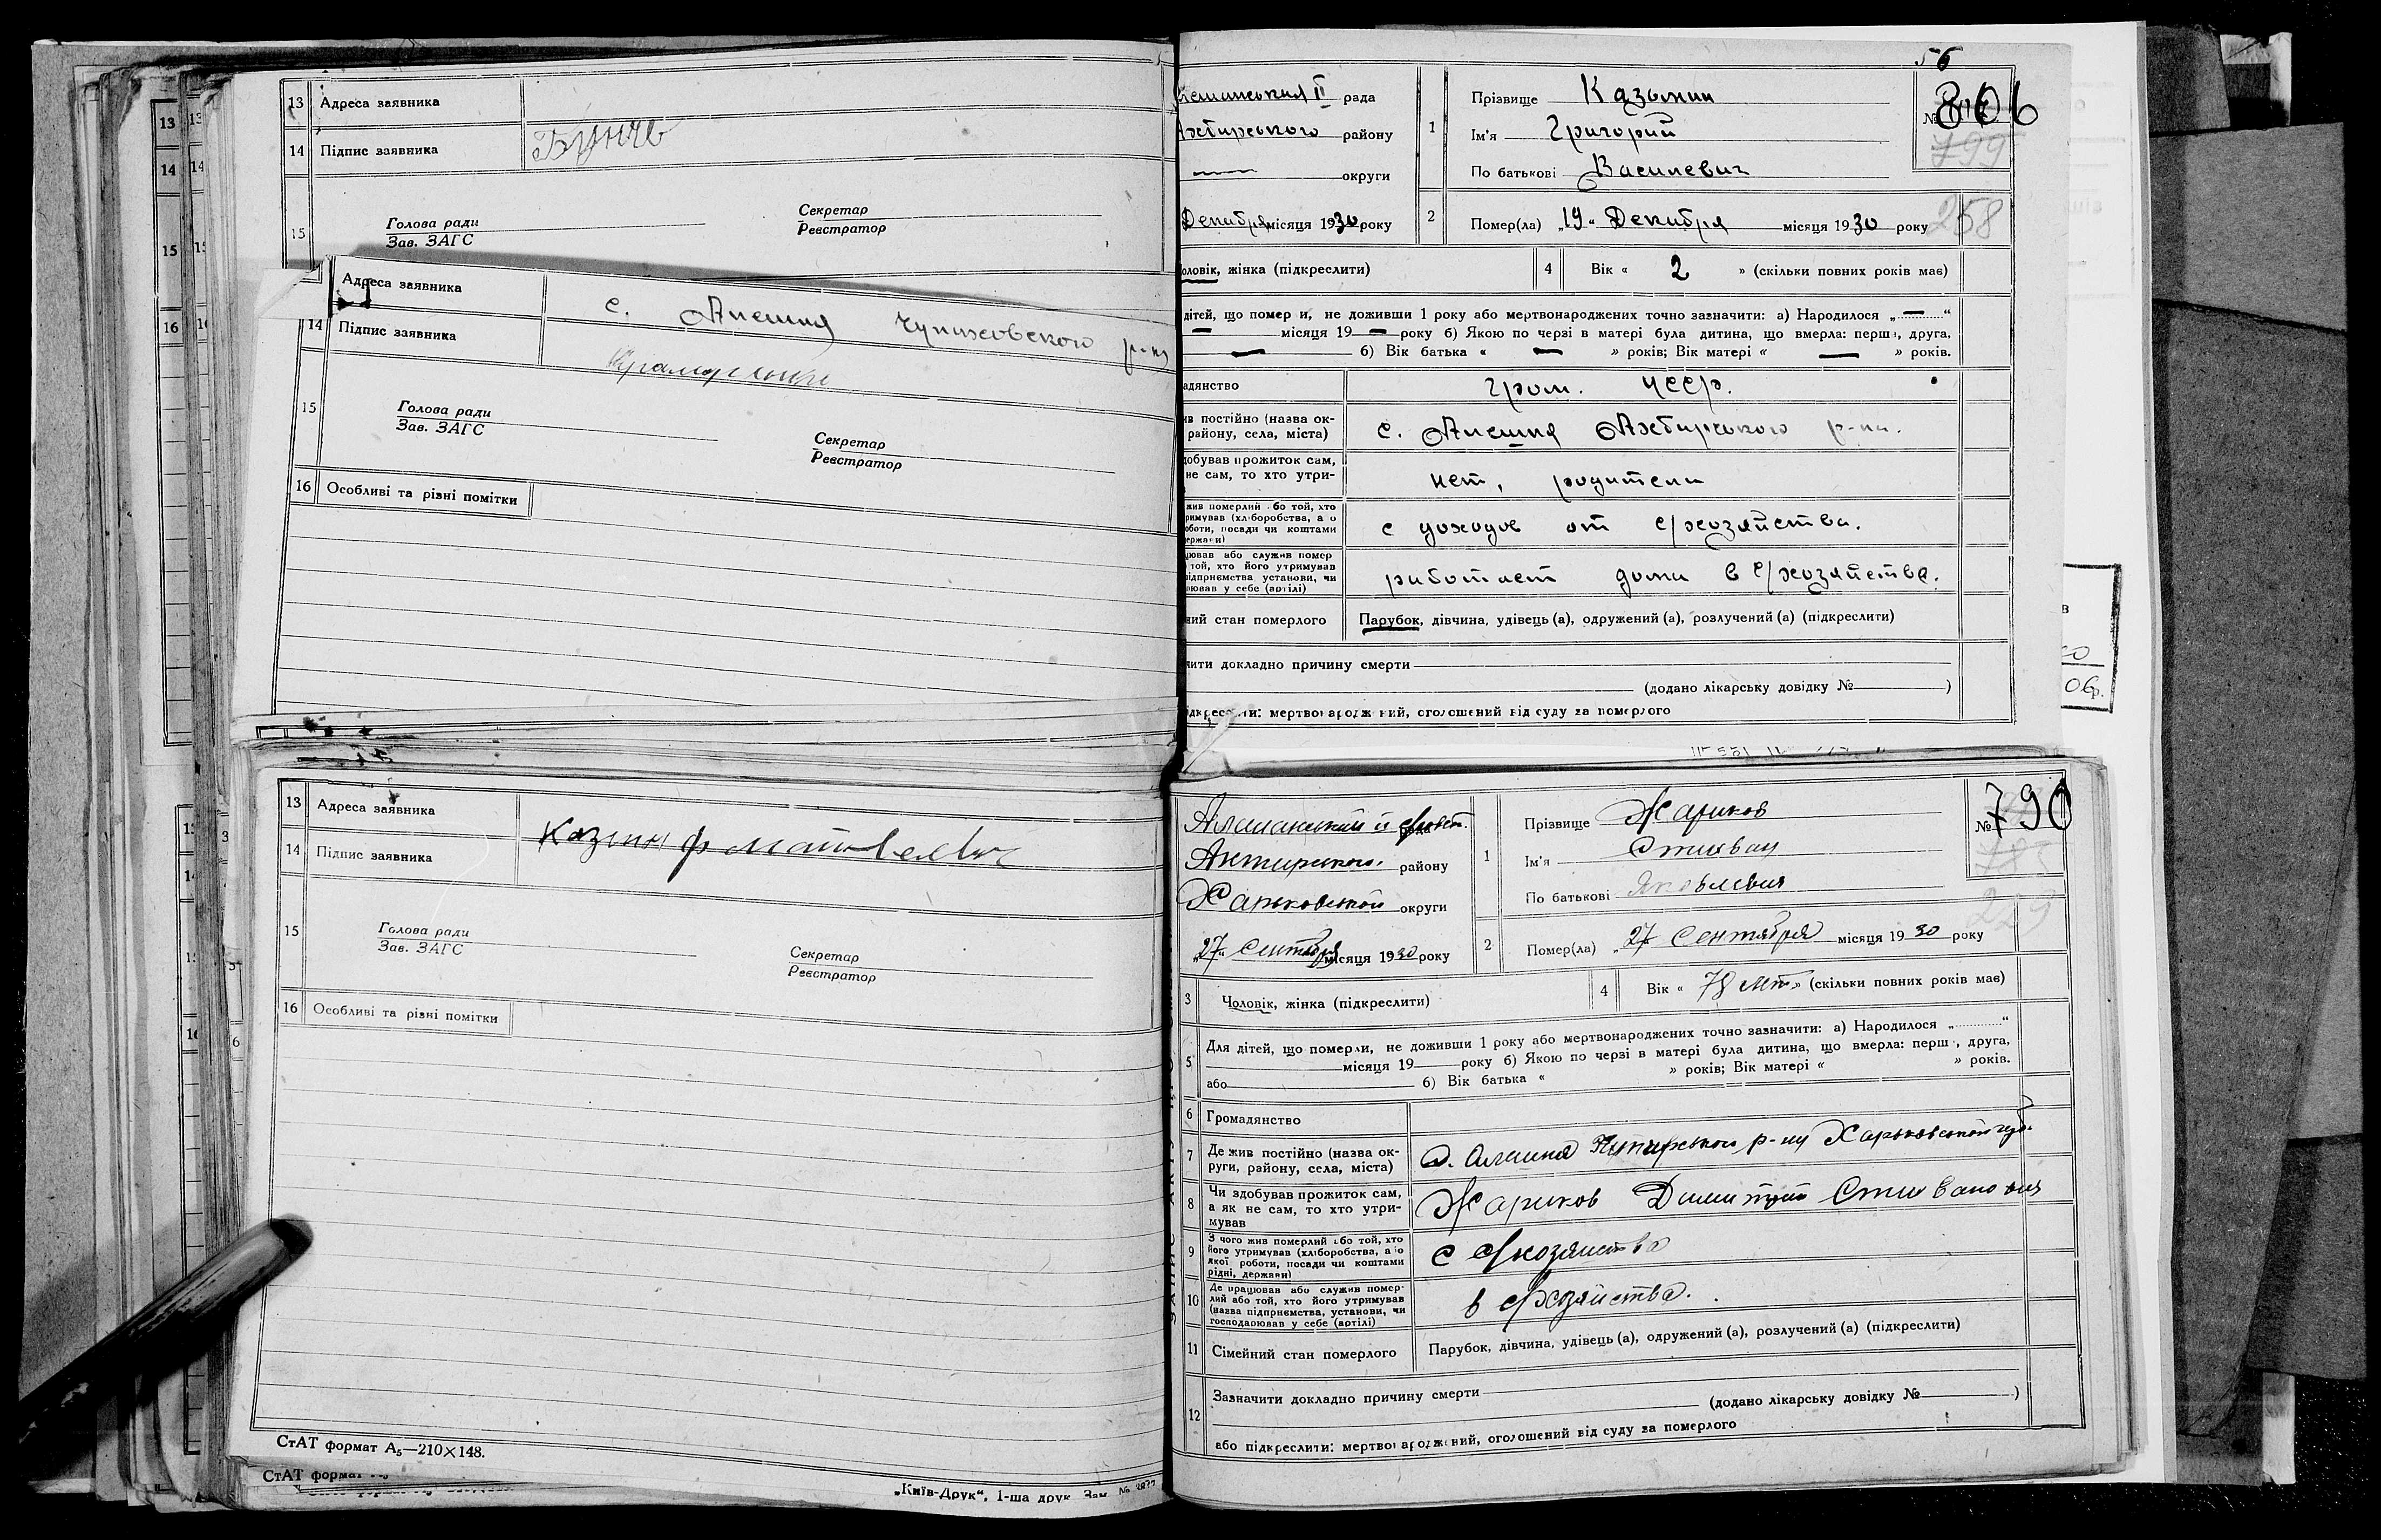 13 Адреса заявника
14 Підпис заявника
15 Голова ради
Зав. ЗАГС
Секретар
Реєстратор
Адреса заявника с. Алешня р-на
14 Підпис заявника
15 Голова ради
Зав. ЗАГС
Секретар
Реєстратор
16 Особливі та різні помітки
13 Адреса заявника
14 Підпис заявника Казмин
15 Голова ради
Зав. ЗАГС
Секретар
Реєстратор
16 Особливі та різні помітки
СтАТ формат А5—210×148.
СтАТ
„Київ-Друк“, 1-ша друк. Зам. №
56
рада
Ахтирського району
округи
Декабря місяця 1930 року
1 Прізвище Казьмин
Ім'я Григорий
По батькові Василевич
№ 806
799
2 Помер(ла) „19“ Декабря місяця 1930 року
258
оловік, жінка (підкреслити)
4 Вік « 2 » (скільки повних років має)
дітей, що помер и, не доживши 1 року або мертвонароджених точно зазначити: а) Народилося „ — “
— місяця 19 — року б) Якою по черзі в матері була дитина, що вмерла: перш , друга,
— б) Вік батька « — » років; Вік матері « — » років.
адянство гром. УССР.
ив постійно (назва ок-
району, села, міста) с. Алешня Ахтирського р-на.
добував прожиток сам,
не сам, то хто утри- нет, родители
жив померлий або той, хто
римував (хліборобства, а о
оботи, посади чи коштами
ержави) с доходов от с/хозяйства.
цював або служив помер
той, хто його утримував
підприємства установи, чи
рював у себе (артілі) работает дома в с/хозяйстве.
ний стан померлого Парубок, дівчина, удівець (а), одружений (а), розлучений (а) (підкреслити)
чити докладно причину смерти
(додано лікарську довідку № )
ідкреслити: мертвонароджений, оголошений від суду за померлого
рада
району
Харьковской округи
„27“ Сентября місяця 1930 року
1 Прізвище Жариков
Ім'я Стиван
По батькові Яковлевич
№ 790
229
2 Помер(ла) „27“ Сентября місяця 1930 року
3 Чоловік, жінка (підкреслити)
4 Вік « 78 лет » (скільки повних років має)
5 Для дітей, що померли, не доживши 1 року або мертвонароджених точно зазначити: а) Народилося „ “
місяця 19 року б) Якою по черзі в матері була дитина, що вмерла: перш , друга,
або б) Вік батька « » років; Вік матері « » років.
6 Громадянство
7 Де жив постійно (назва ок-
руги, району, села, міста) с. Алешня р-ну Харьковской
8 Чи здобував прожиток сам,
а як не сам, то хто утри-
мував Жариков Димитрий Стиванович
9 З чого жив померлий або той, хто
його утримував (хліборобства, а о
якої роботи, посади чи коштами
рідні, держави) с с/хозяйства
10 Де працював або служив помер-
лий або той, хто його утримував
(назва підприємства, установи, чи
господарював у себе (артілі) в с/хозяйства.
11 Сімейний стан померлого Парубок, дівчина, удівець (а), одружений (а), розлучений (а) (підкреслити)
12 Зазначити докладно причину смерти
(додано лікарську довідку № )
або підкреслити: мертвонароджений, оголошений від суду за померлого